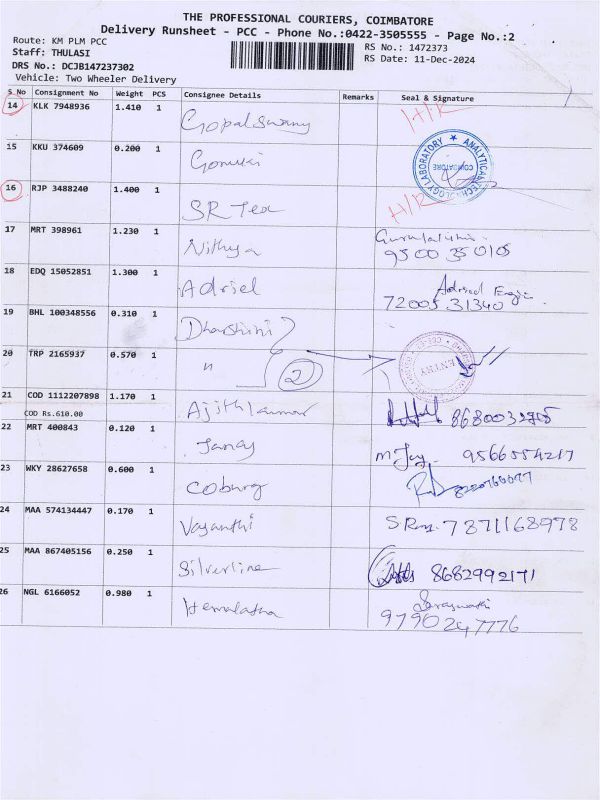 THE PROFESSIONAL COURIERS, COIMBATORE
Delivery Runsheet - PCC - Phone No.:0422-3505555 - Page No.:2
Route: KM PLM PCC
Staff: THULASI
DRS No.: DCJB147237302
Vehicle: Two Wheeler Delivery
RS No.: 1472373
RS Date: 11-Dec-2024
S No Consignment No Weight PCS Consignee Details Remarks Seal & Signature
14 KLK 7948936 1.410 1 Gopalswamy H/R
15 KKU 374609 0.200 1
ANALYTICAL TECHNOLOGY LABORATORY
COIMBATORE
16 RJP 3488240 1.400 1 SR Tex H/R
17 MRT 398961 1.230 1 Nithya
9500350105
18 EDQ 15052851 1.300 1 Adriel Adriel
72005 31340
19 BHL 100348556 0.310 1 Dharshini
20 TRP 2165937 0.570 1 " 2
ENTRY
21 COD 1112207898 1.170 1 Ajithkumar
COD Rs.610.00
22 MRT 400843 0.120 1 M Jay 9566554217
23 WKY 28627658 0.600 1 Coburg
24 MAA 574134447 0.170 1 Vayanthi 7871168978
25 MAA 867405156 0.250 1 Silverline 8682992171
26 NGL 6166052 0.980 1 Hemalatha Saraswathi
9790247776